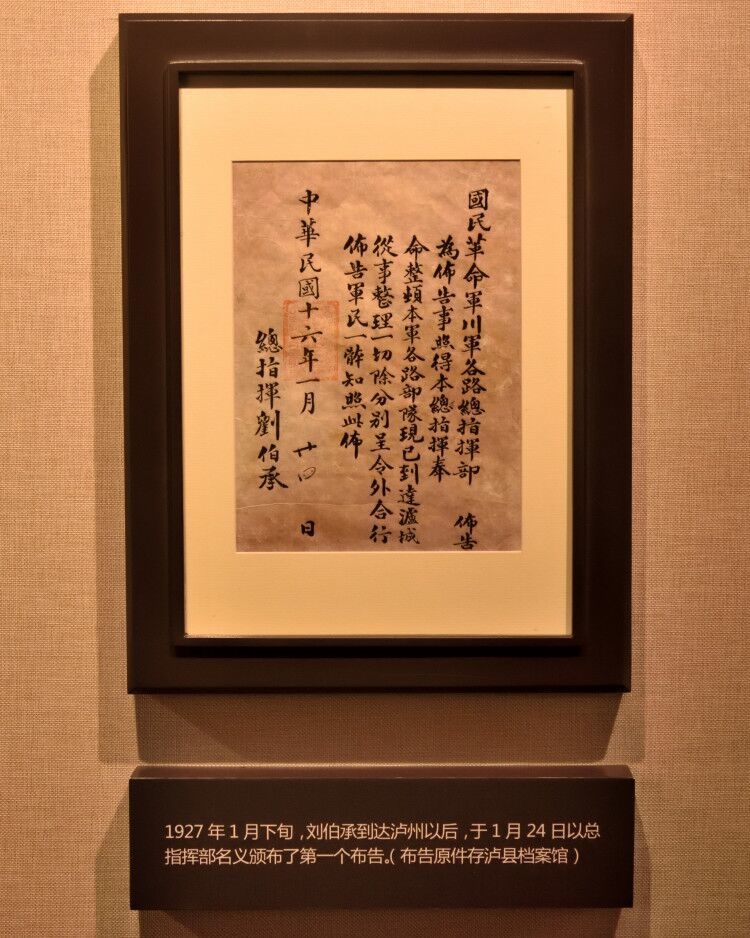 國民革命軍川軍各路總指揮部 佈告
為佈告事照得本總指揮奉
命整頓本軍各路部隊現已到達瀘城
從事整理一切除分别呈令外合行
佈告軍民一體知照此佈
中華民國十六年一月 廿四 日
總指揮劉伯承
1927 年 1 月下旬，刘伯承到达泸州以后，于 1 月 24 日以总
指挥部名义颁布了第一个布告。（布告原件存泸县档案馆）